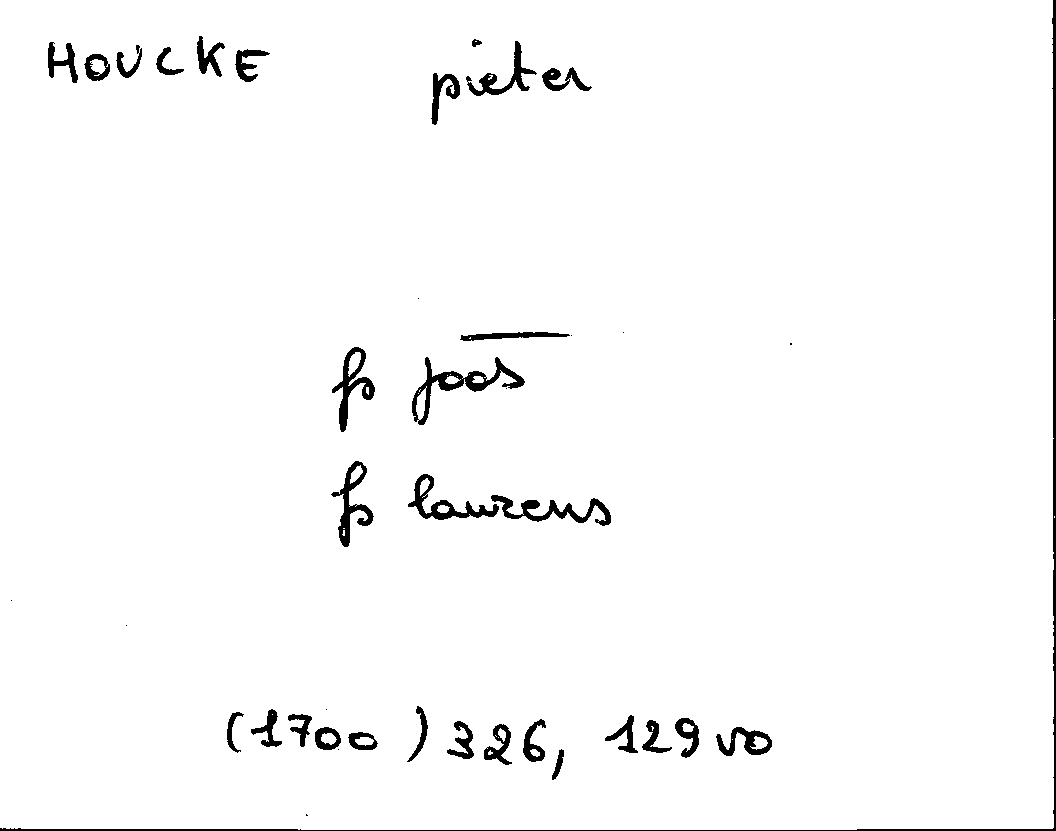 HOUCKE pieter
fs joos
fs laurens
(1700) 326, 129 vo